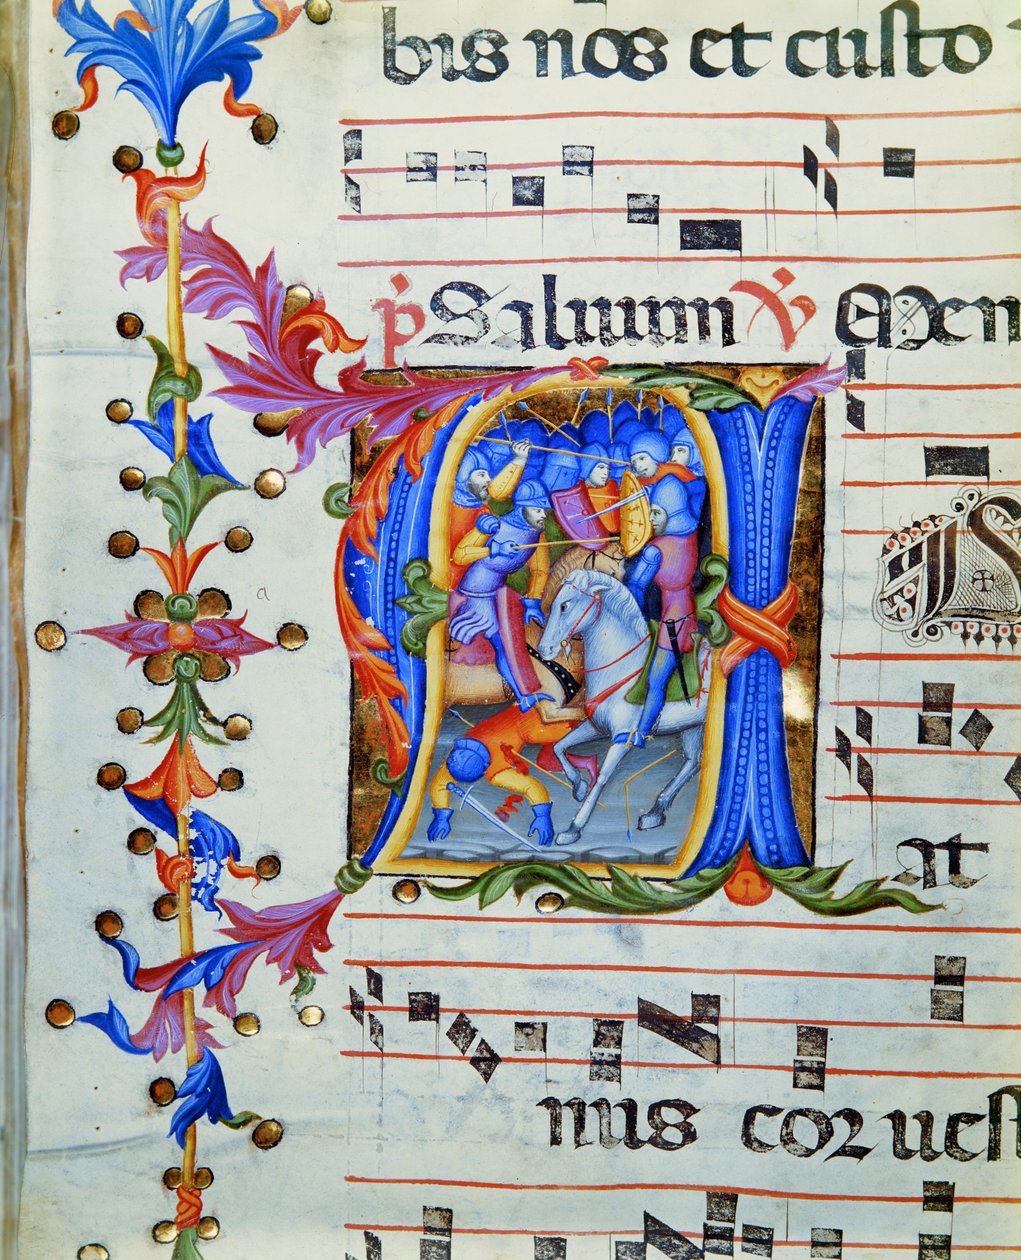 bus nos et custo
p̄ Saluum ℣
A
at
nus cor uest